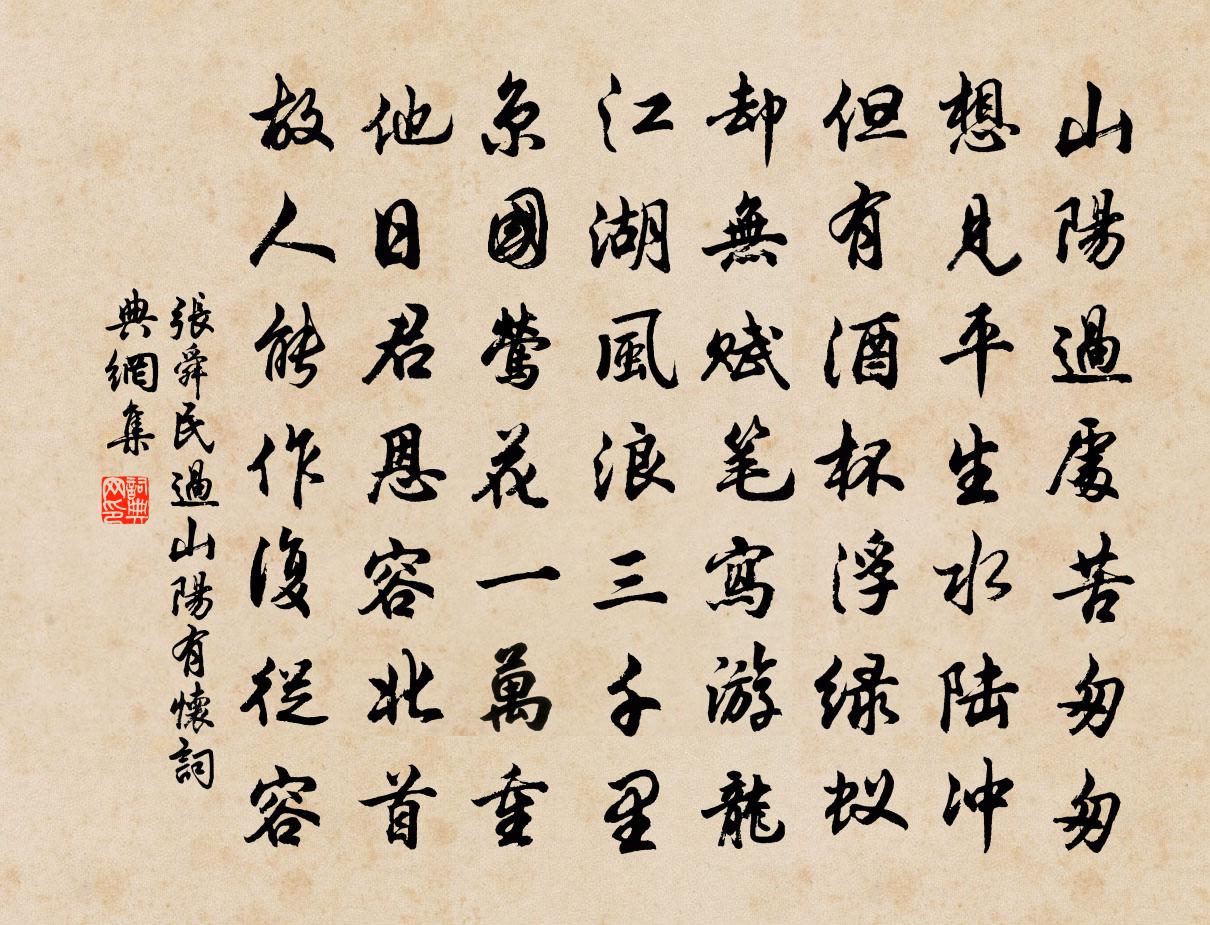 山陽過處苦匆匆
想見平生水陆冲
但有酒杯浮绿蚁
却無赋笔寫游龍
江湖風浪三千里
京國鶯花一萬重
他日君恩容北首
故人能作復從容
張舜民過山陽有懷詞
典網集
詞典
网印